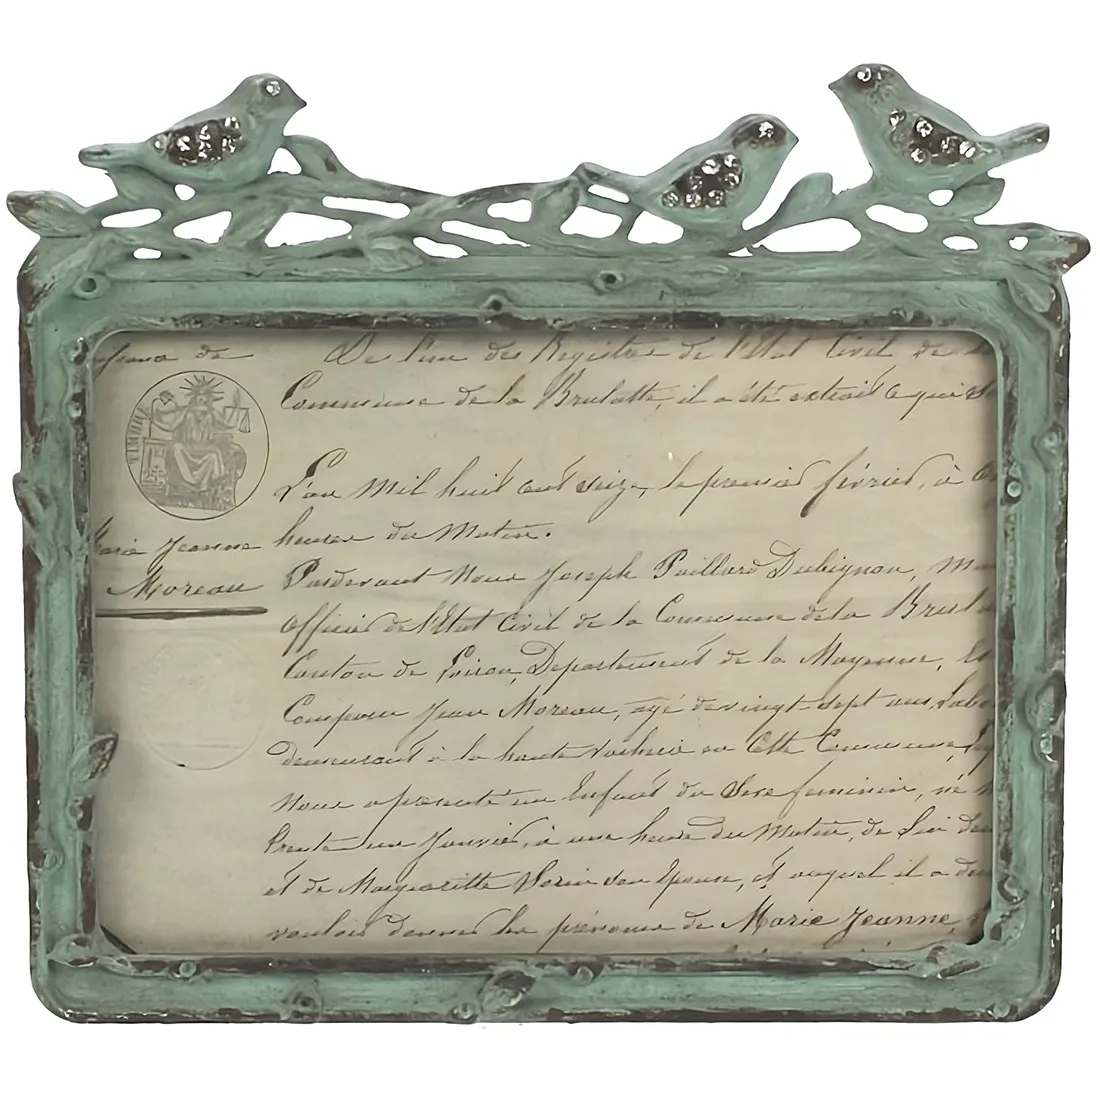 de
De l'un des Registres de l'Etat Civil de
Commune de la Brulatte, il a été extrait ce qui
TIMBRE
L'an mil huit cent seize, le premier février, à
Marie Jeanne
heures du Matin.
Moreau
Pardevant Nous Joseph Paillard Dubignon,
officier de l'Etat Civil de la Commune de la
Canton de Loiron, Département de la Mayenne,
Comparu Jean Moreau, agé de vingt-sept ans,
demeurant à la haute en Cette Commune,
Nous a présenté un Enfant du Sexe féminin, né
trente un Janvier, à une heure du Matin, de Lui
et de Margueritte son Epouse, et auquel il a
vouloir donner les prénoms de Marie Jeanne,